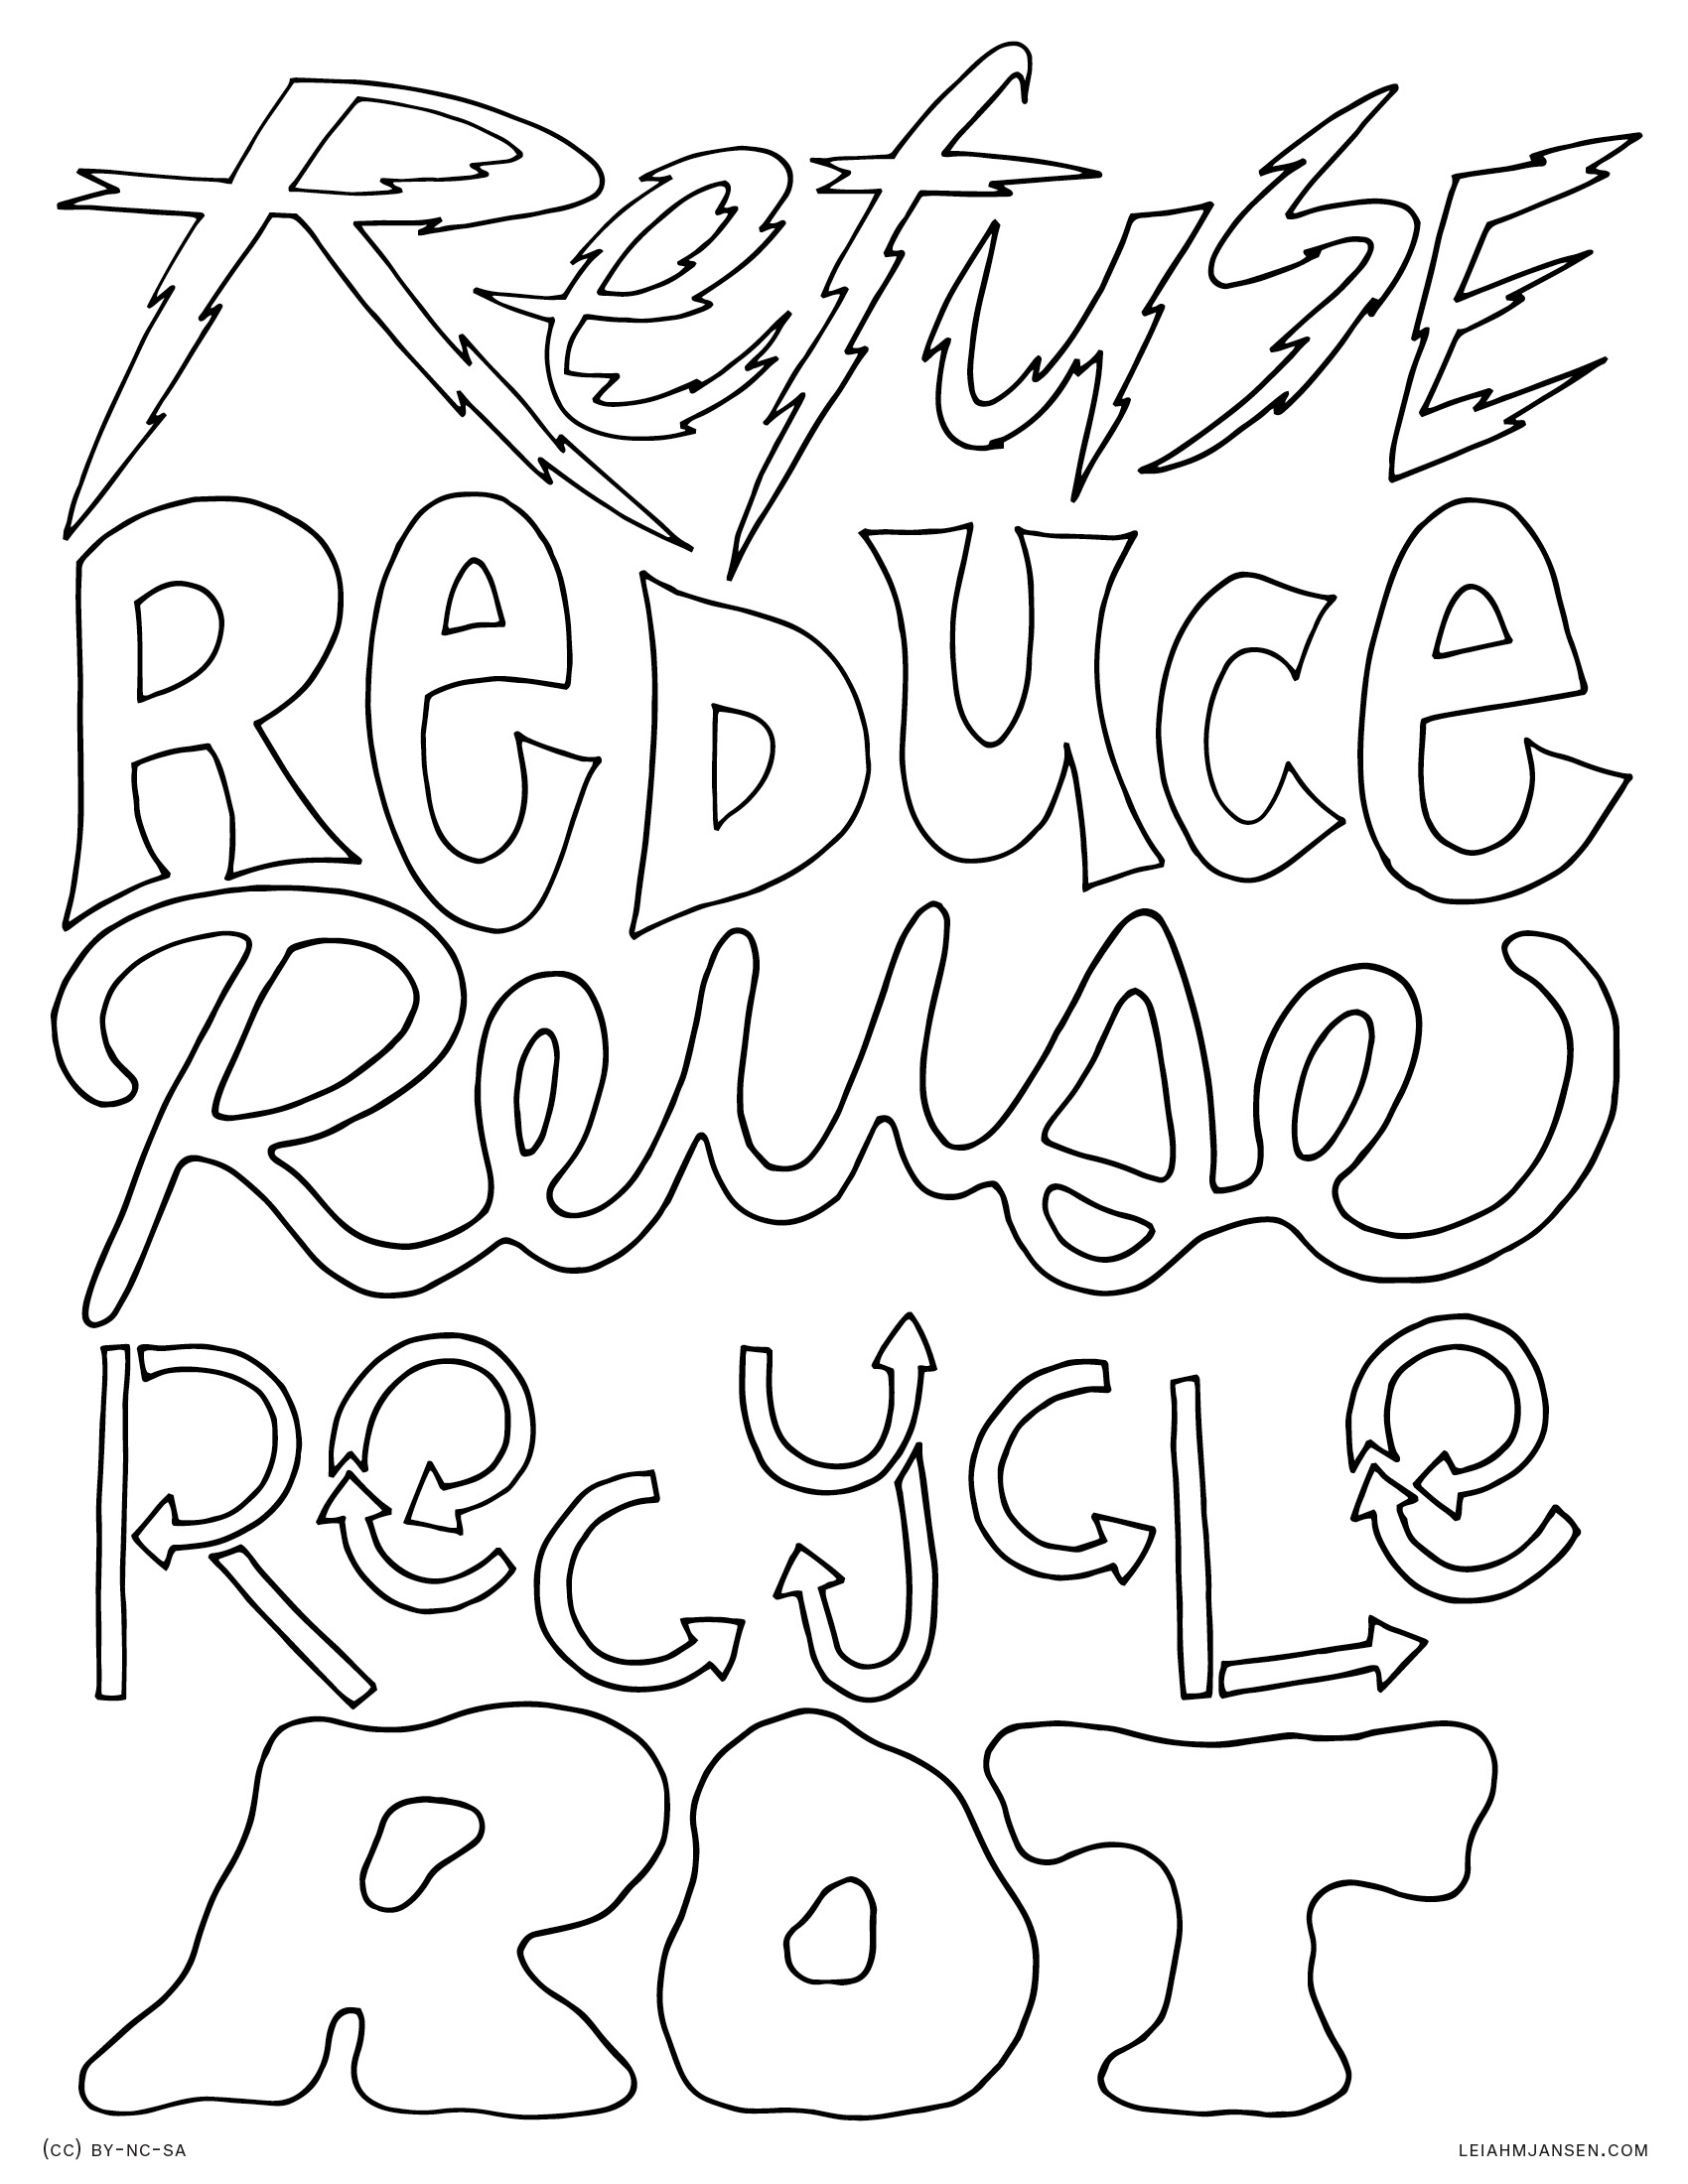 Refuse
Reduce
Reuse
Recycle
ROT
(CC) BY-NC-SA
LEIAHMJANSEN.COM